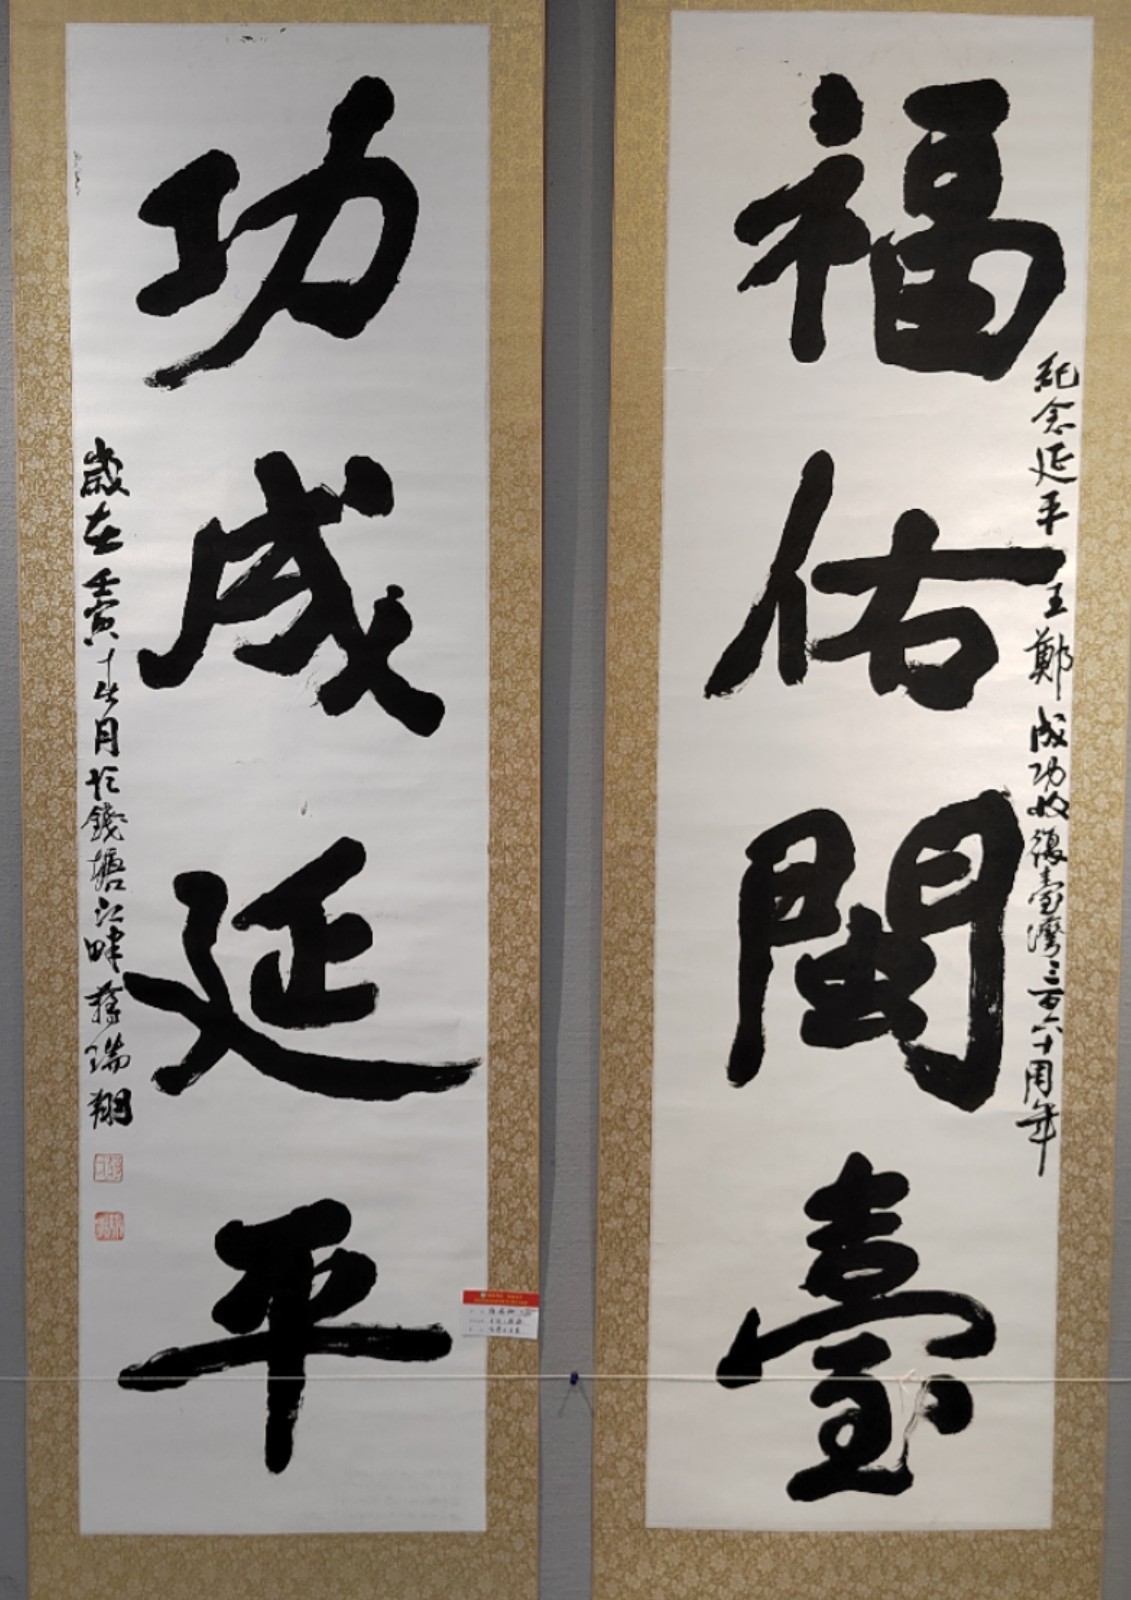 福佑閩臺
紀念延平王鄭成功收復臺灣三百六十周年
功成延平
歲在壬寅十一月於錢塘江畔蔣瑞翔